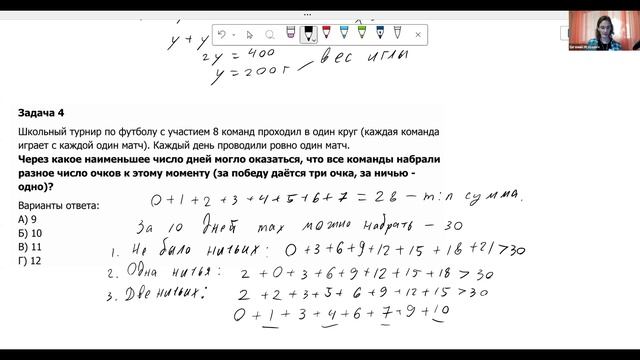 y + y
2y = 400
y = 200 г
вес иглы
Задача 4
Школьный турнир по футболу с участием 8 команд проходил в один круг (каждая команда
играет с каждой один матч). Каждый день проводили ровно один матч.
Через какое наименьшее число дней могло оказаться, что все команды набрали
разное число очков к этому моменту (за победу даётся три очка, за ничью -
одно)?
Варианты ответа:
А) 9
Б) 10
В) 11
Г) 12
0 + 1 + 2 + 3 + 4 + 5 + 6 + 7 = 28 - min сумма.
За 10 дней max можно набрать - 30
1. Не было ничьих: 0 + 3 + 6 + 9 + 12 + 15 + 18 + 21 > 30
2. Одна ничья: 2 + 0 + 3 + 6 + 9 + 12 + 15 + 18 > 30
3. Две ничьих: 2 + 2 + 3 + 5 + 6 + 9 + 12 + 15 > 30
0 + 1 + 3 + 4 + 6 + 7 + 9 + 10